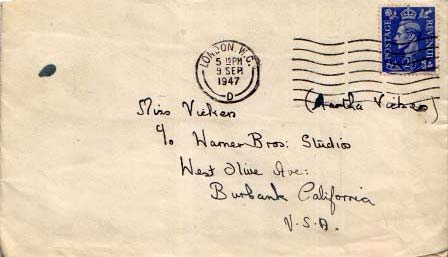 POSTAGE REVENUE
LONDON. W.C.
5 15 PM
9 SEP
1947
D
Miss Vickers (Martha Vickers)
c/o Warner Bros: Studios
West Olive Ave:
Burbank California
U.S.A.